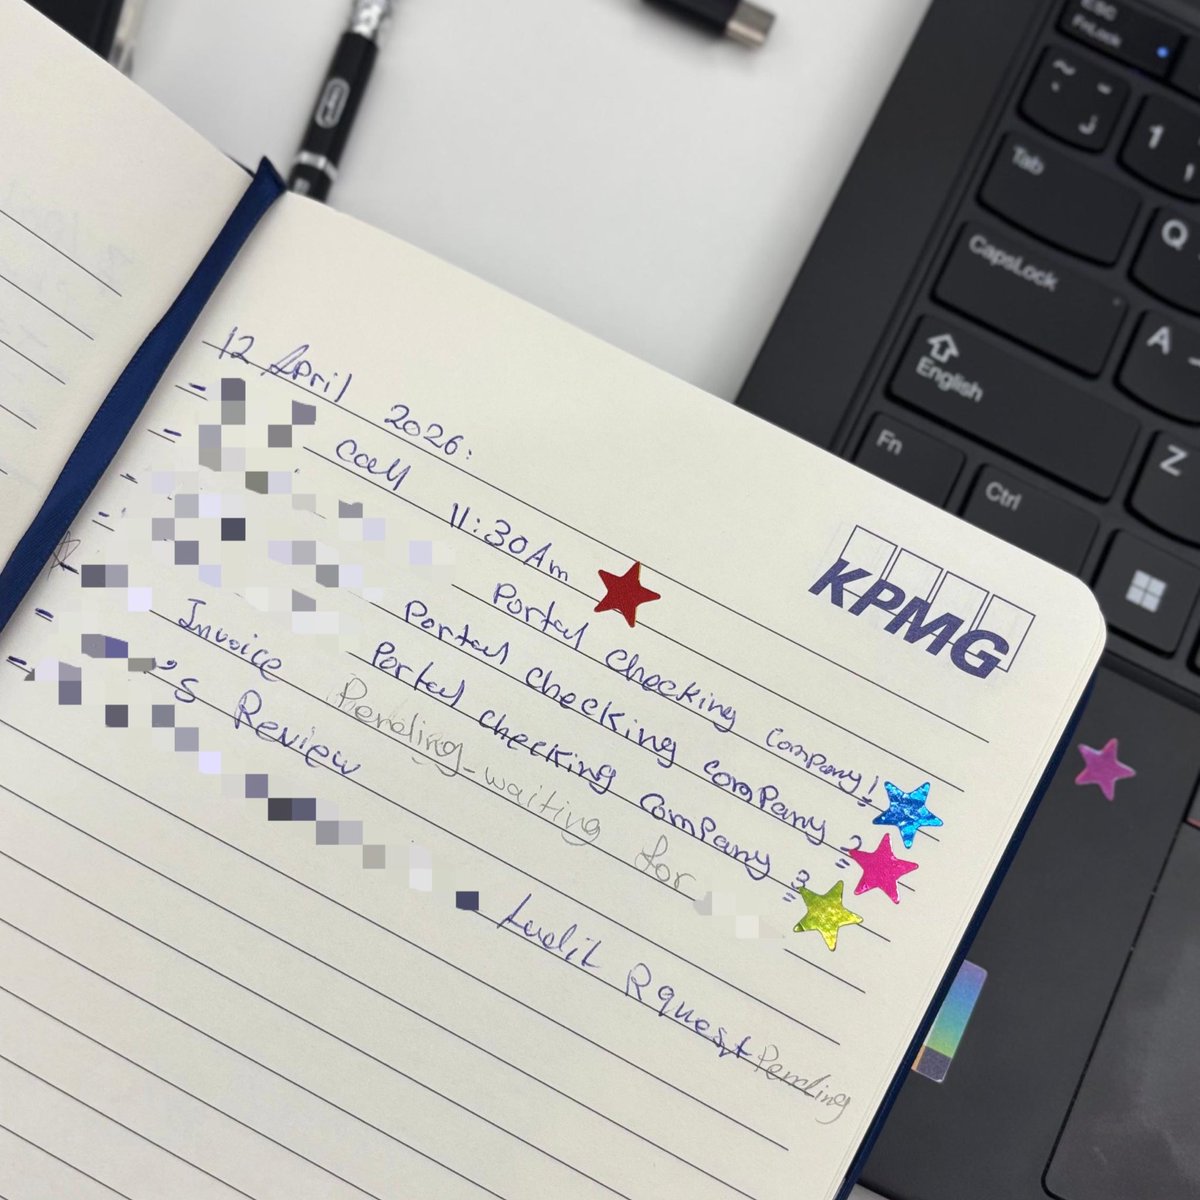 12 April 2026:
-
- Call 11:30Am
- Portal checking company 1
- Portal checking company 2
- Portal checking company 3
- Invoice Pending-waiting for
- 's Review
- Audit Rquest Pending
KPMG
ESC
FnLock
~
ذ
1
Tab
Q
CapsLock
A
English
Z
Fn
Ctrl